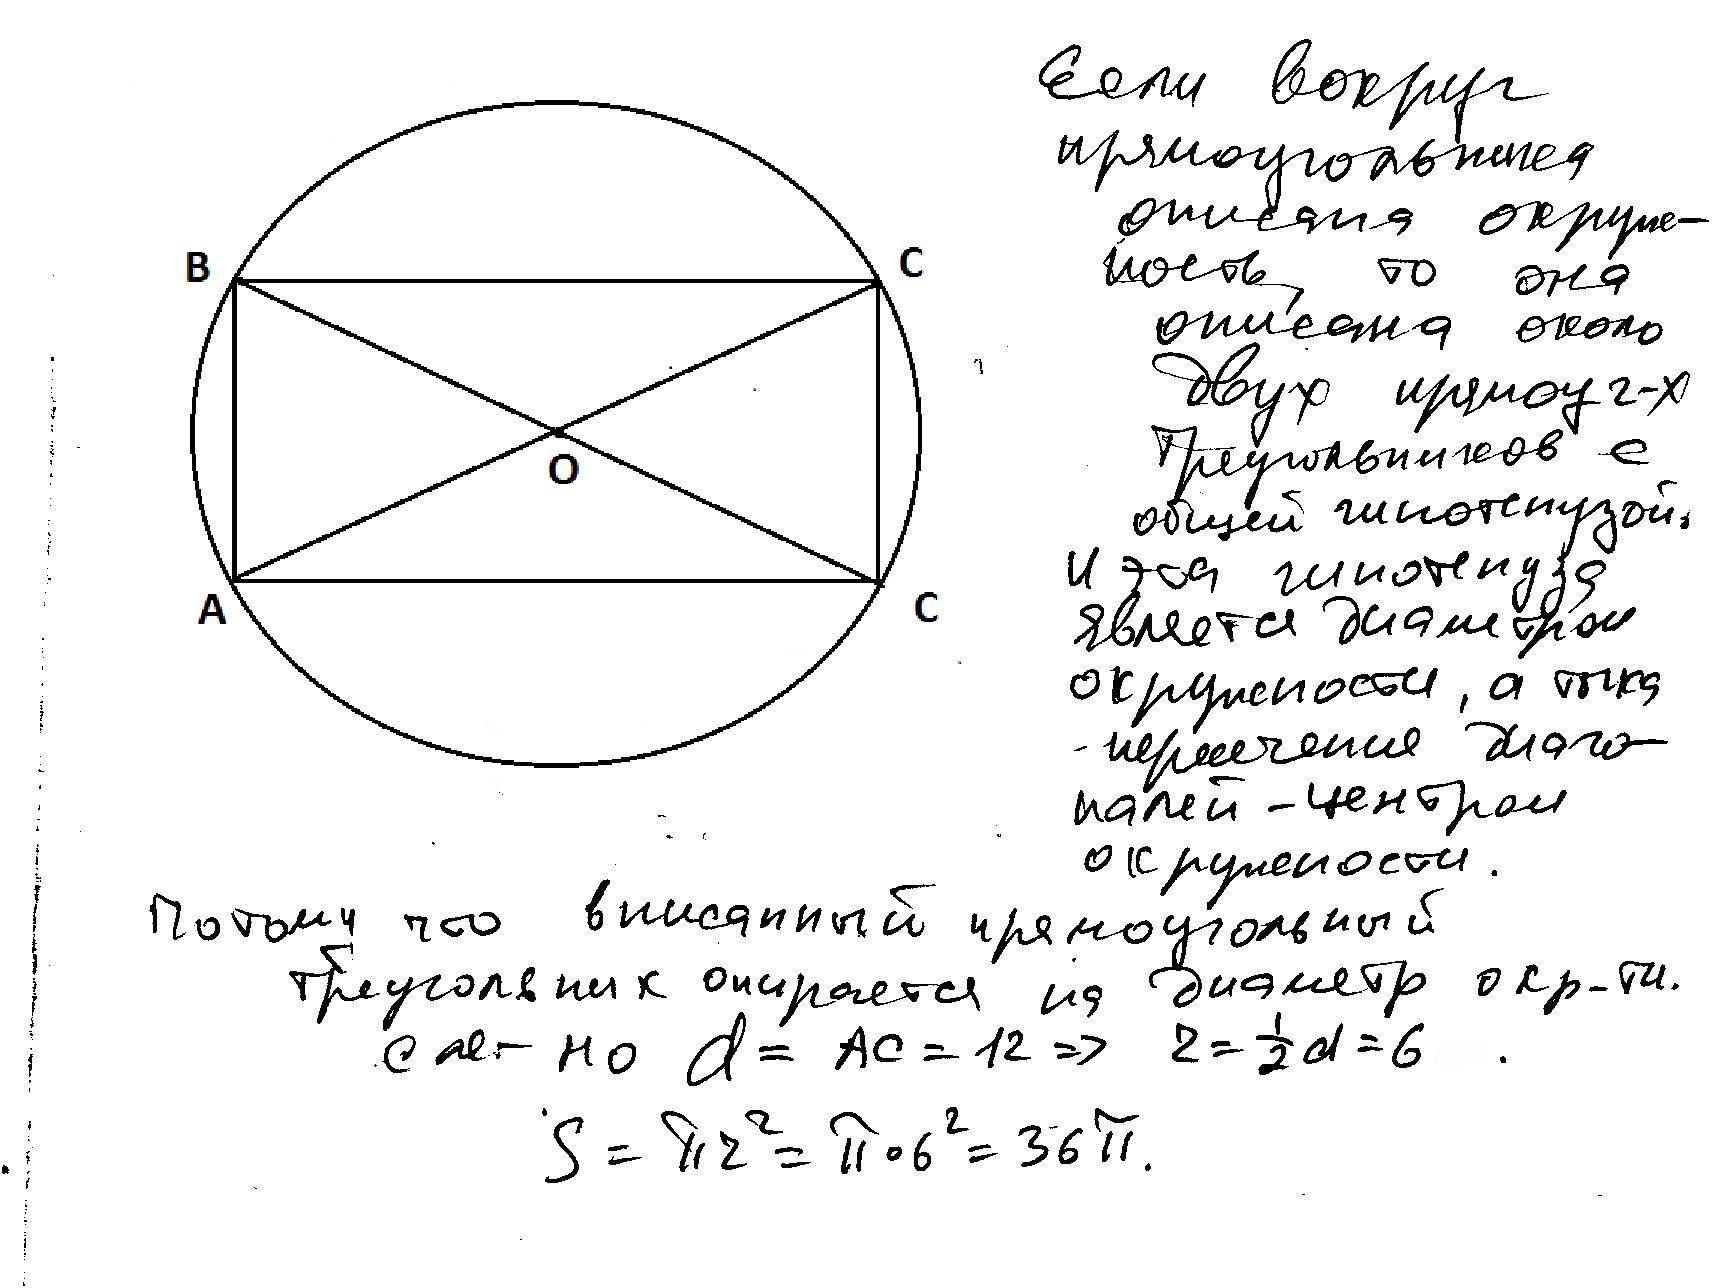 B
C
O
A
C
Если вокруг
прямоугольника
описана окруж-
ность, то она
описана около
двух прямоуг-х
треугольников с
общей гипотенузой.
И эта гипотенуза
является диаметром
окружности, а точка
пересечения диаго-
налей - центром
окружности.
Потому что вписанный прямоугольный
треугольник опирается на диаметр окр-ти.
но d = AC = 12 => r = 1/2 d = 6 .
S = πr² = π·6² = 36π.